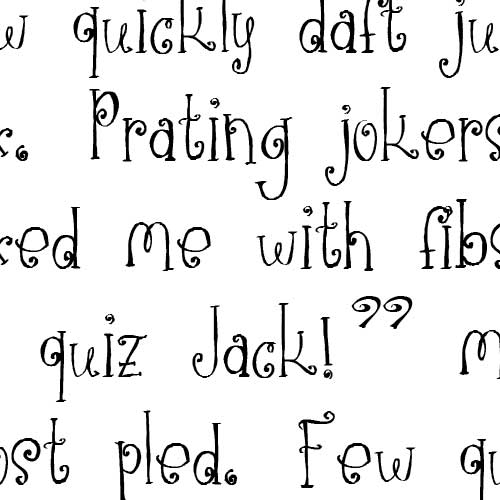 w quickly daft ju
. Prating jokers
ked me with fibs
quiz Jack!” M
ost pled. Few qu